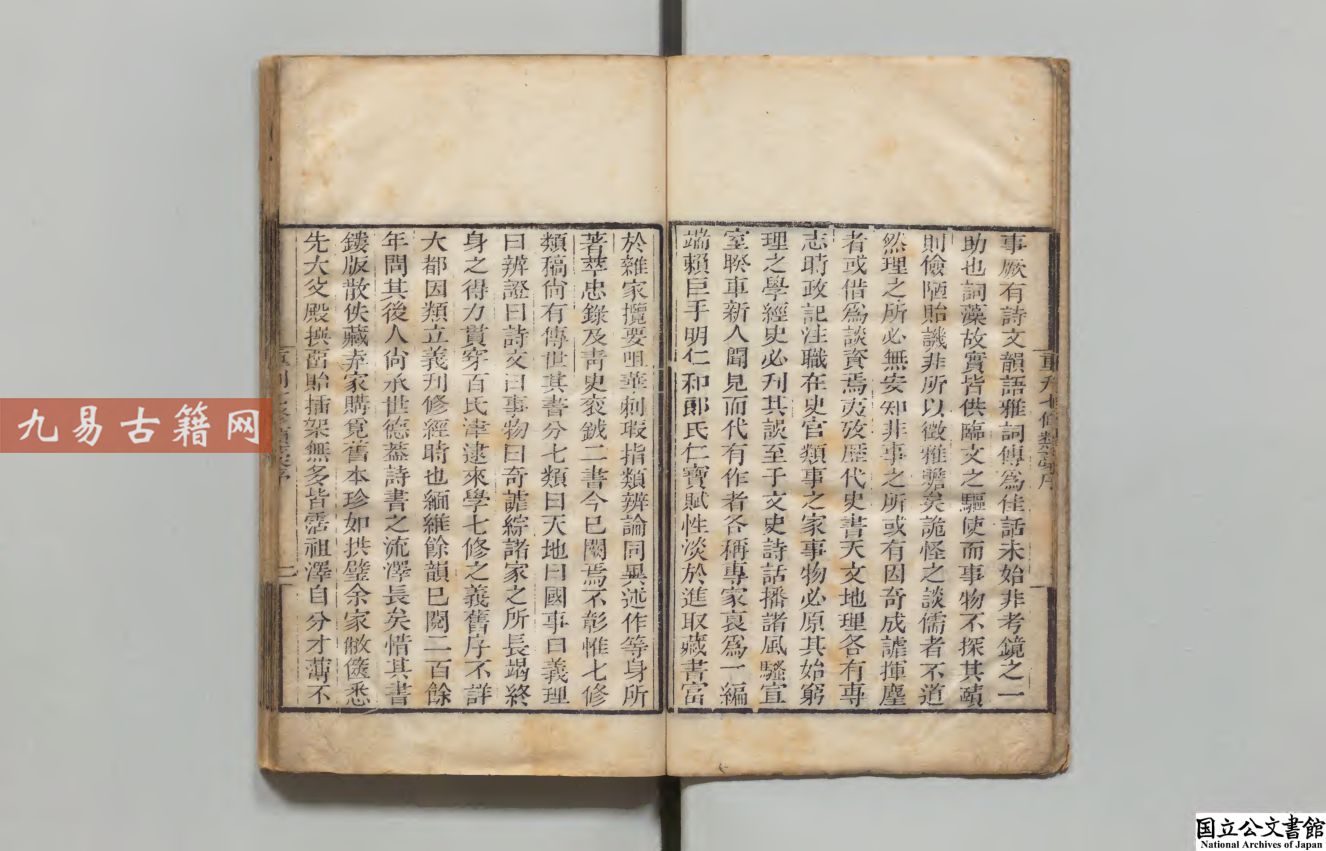 事厥有詩文韻語雅詞傳為佳話未始非考鏡之一
助也詞藻故實皆供臨文之驅使而事物不探其賾
則儉陋貽譏非所以徵雅贍矣詭怪之談儒者不道
然理之所必無安知非事之所或有因奇成謔揮塵
者或借為談資焉夷攷歷代史書天文地理各有專
志時政記注職在史官類事之家事物必原其始窮
理之學經史必刋其誤至于文史詩話播諸風騷宣
室睽車新人聞見而代有作者各稱專家裒為一編
端賴巨手明仁和郎氏仁寶賦性淡於進取藏書富
於雜家攬要咀華刺瑕指類辨論同異述作等身所
著萃忠錄及青史袞鉞二書今已闕焉不彰惟七修
類稿尙有傳世其書分七類曰天地曰國事曰義理
曰辨證曰詩文曰事物曰奇謔綜諸家之所長竭終
身之得力貫穿百氏津逮來學七修之義舊序不詳
大都因類立義刋修經時也緬維餘韻已閱二百餘
年問其後人尙承世德葢詩書之流澤長矣惜其書
鏤版散佚藏弆家購覔舊本珍如拱璧余家敝篋悉
先大父殿撰留貽插架無多皆霑祖澤自分才薄不
重刋七修類藁序
二
九易古籍网
国立公文書館
National Archives of Japan